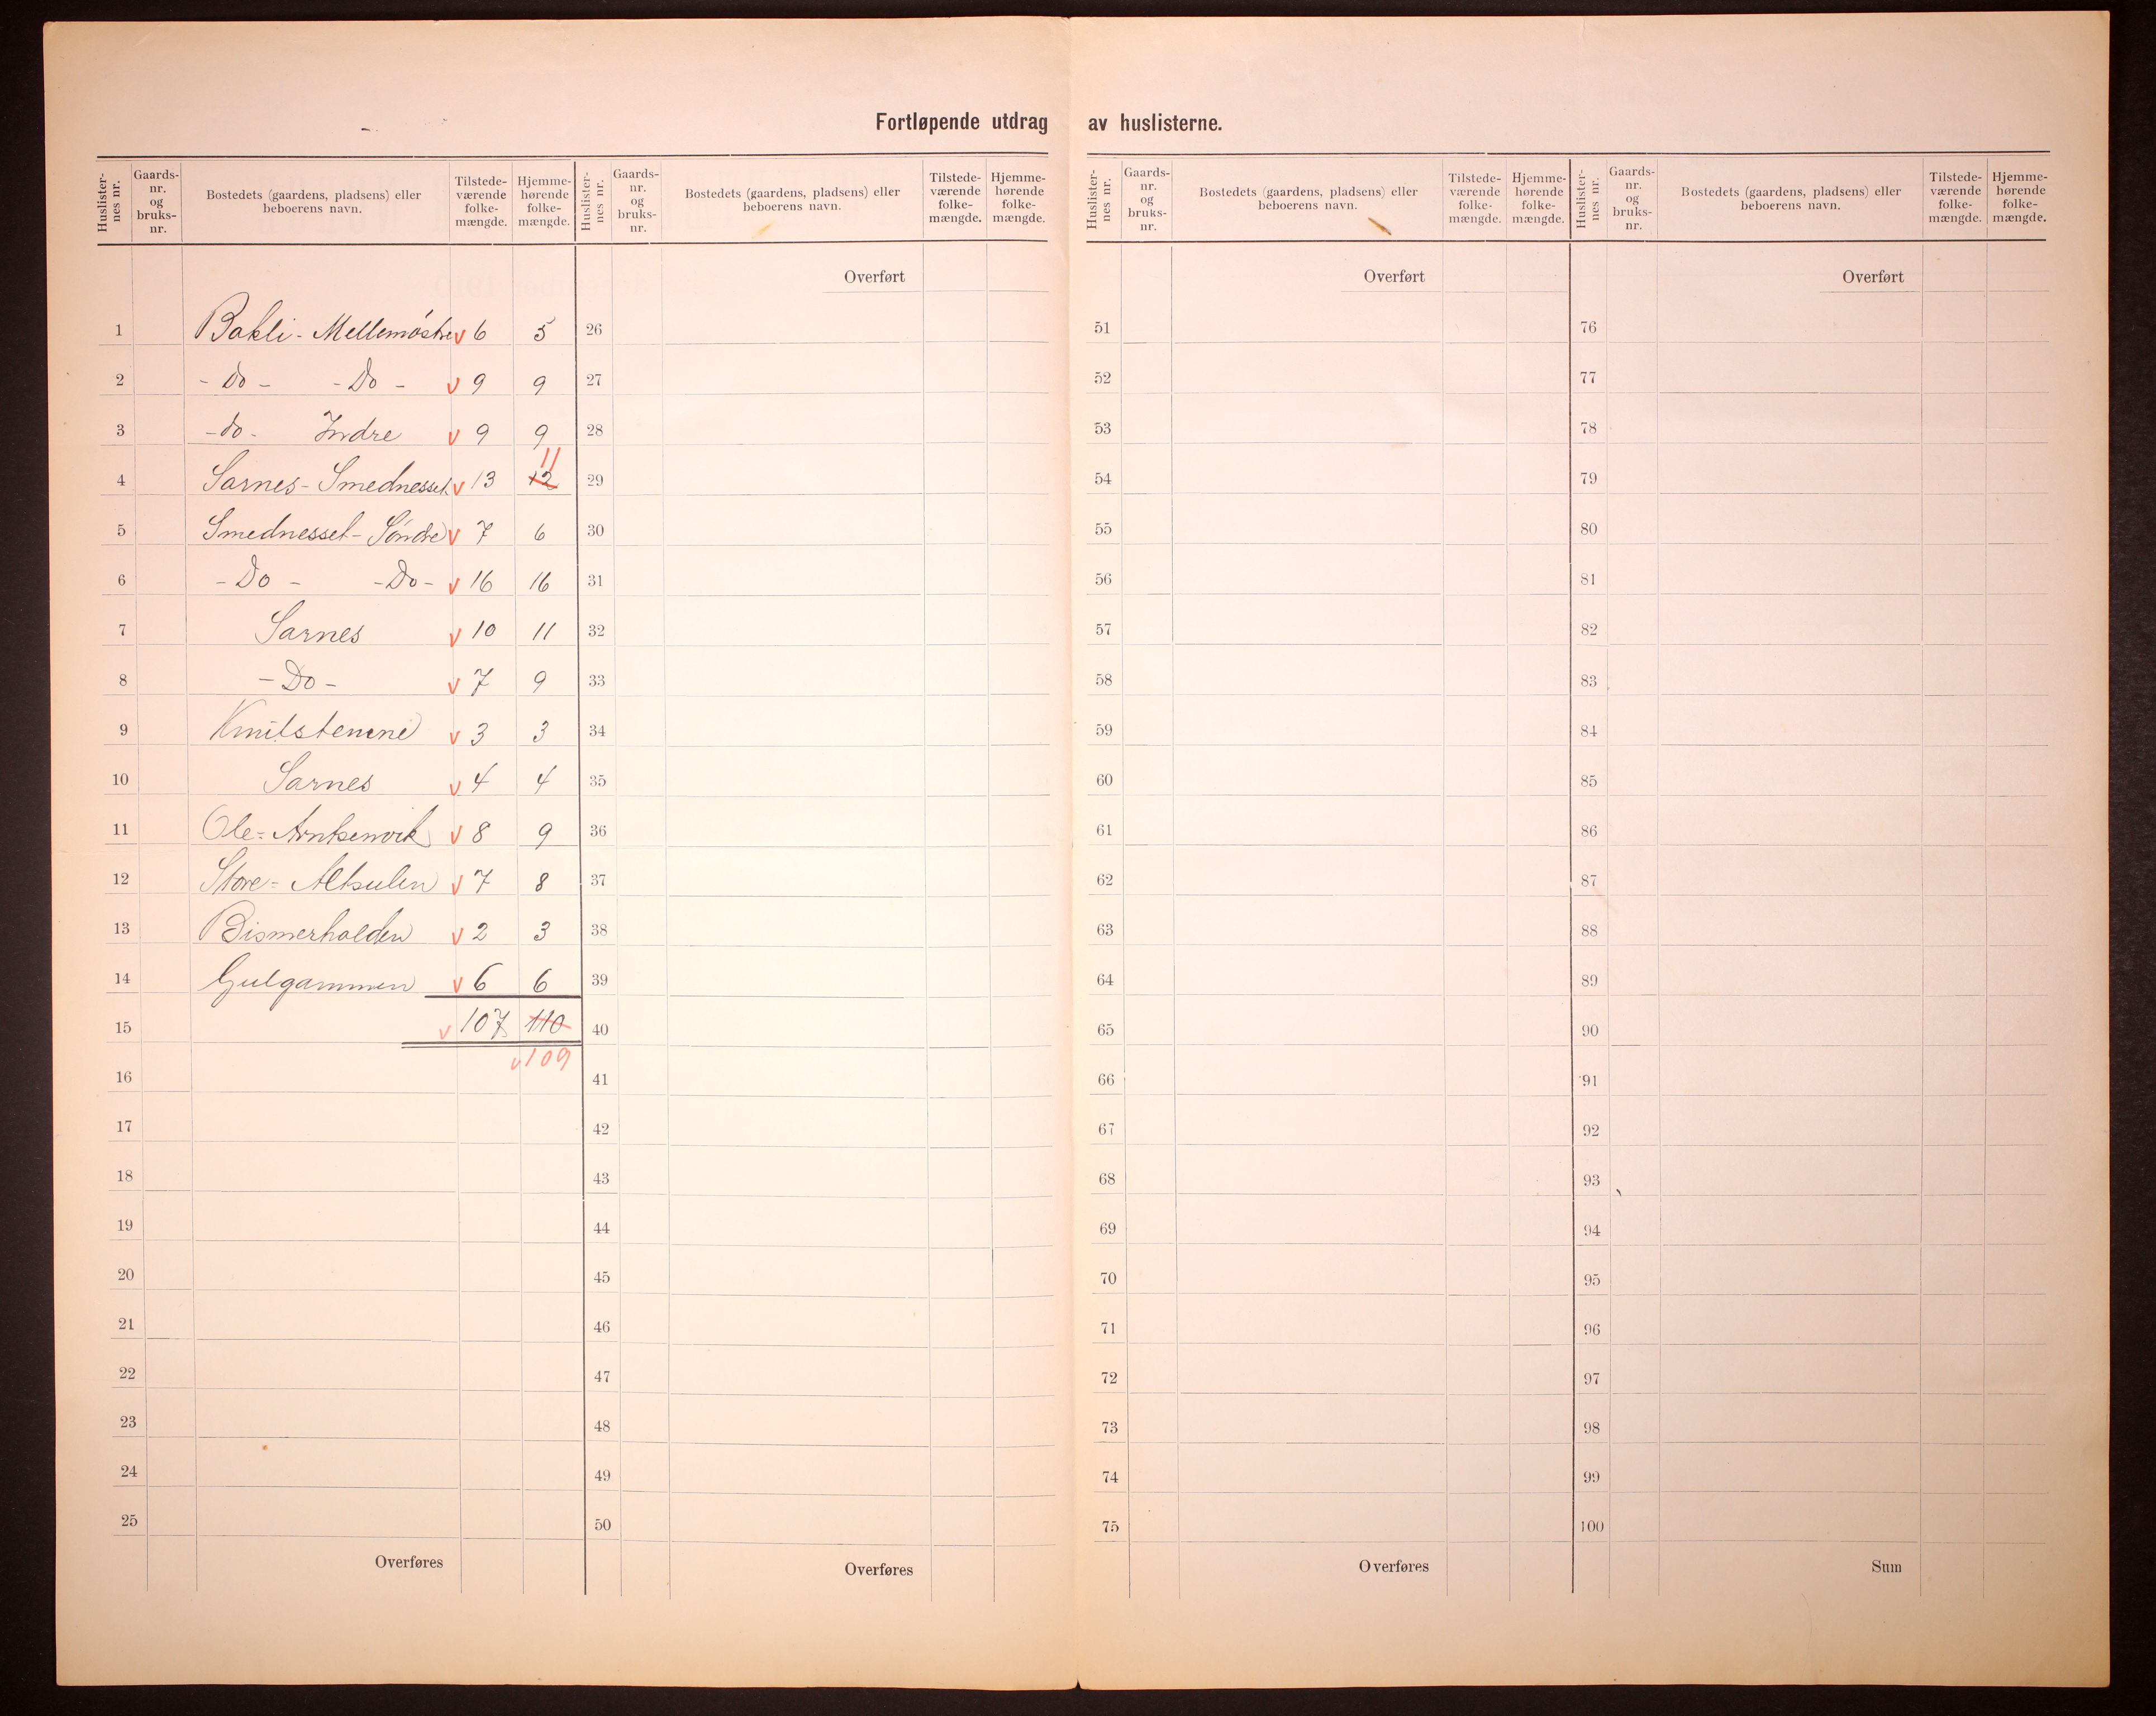 Fortløpende utdrag av huslisterne.
Huslisternes nr. Gaards-nr. og bruks-nr. Bostedets (gaardens, pladsens) eller beboerens navn. Tilstedeværende folkemængde. Hjemmehørende folkemængde.
1 Bakli - Mellemøstre v 6 5
2 - Do - - Do - v 9 9
3 - do - Indre v 9 9
11
4 Sarnes - Smednesset v 13 12
5 Smednesset - Söndre v 7 6
6 - Do - - Do - v 16 16
7 Sarnes v 10 11
8 - Do - v 7 9
9 v 3 3
10 Sarnes v 4 4
11 Ole = Arntsenvik v 8 9
12 Store = Altsulen v 7 8
13 Bismerhalden v 2 3
14 Gulgammen v 6 6
15 v 107 110
v 109
16
17
18
19
20
21
22
23
24
25
Overføres
Huslisternes nr. Gaards-nr. og bruks-nr. Bostedets (gaardens, pladsens) eller beboerens navn. Tilstedeværende folkemængde. Hjemmehørende folkemængde.
Overført
26
27
28
29
30
31
32
33
34
35
36
37
38
39
40
41
42
43
44
45
46
47
48
49
50
Overføres
Huslisternes nr. Gaards-nr. og bruks-nr. Bostedets (gaardens, pladsens) eller beboerens navn. Tilstedeværende folkemængde. Hjemmehørende folkemængde.
Overført
51
52
53
54
55
56
57
58
59
60
61
62
63
64
65
66
67
68
69
70
71
72
73
74
75
Overføres
Huslisternes nr. Gaards-nr. og bruks-nr. Bostedets (gaardens, pladsens) eller beboerens navn. Tilstedeværende folkemængde. Hjemmehørende folkemængde.
Overført
76
77
78
79
80
81
82
83
84
85
86
87
88
89
90
91
92
93
94
95
96
97
98
99
100
Sum